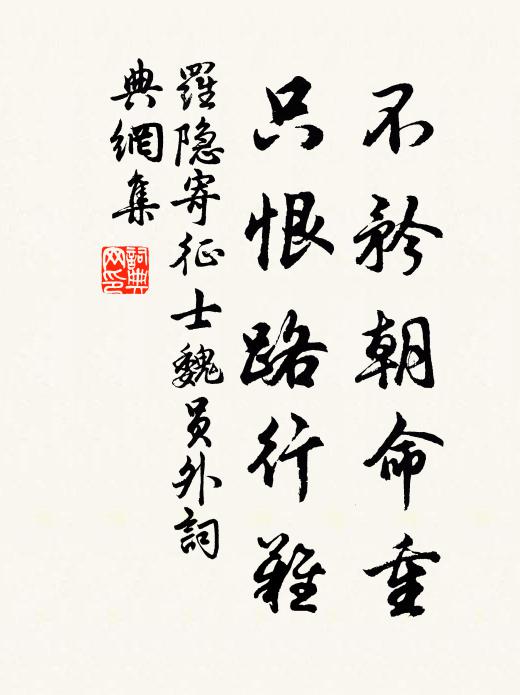 不矜朝命重
只恨路行难
羅隐寄征士魏员外詞
典網集
詞典
网印